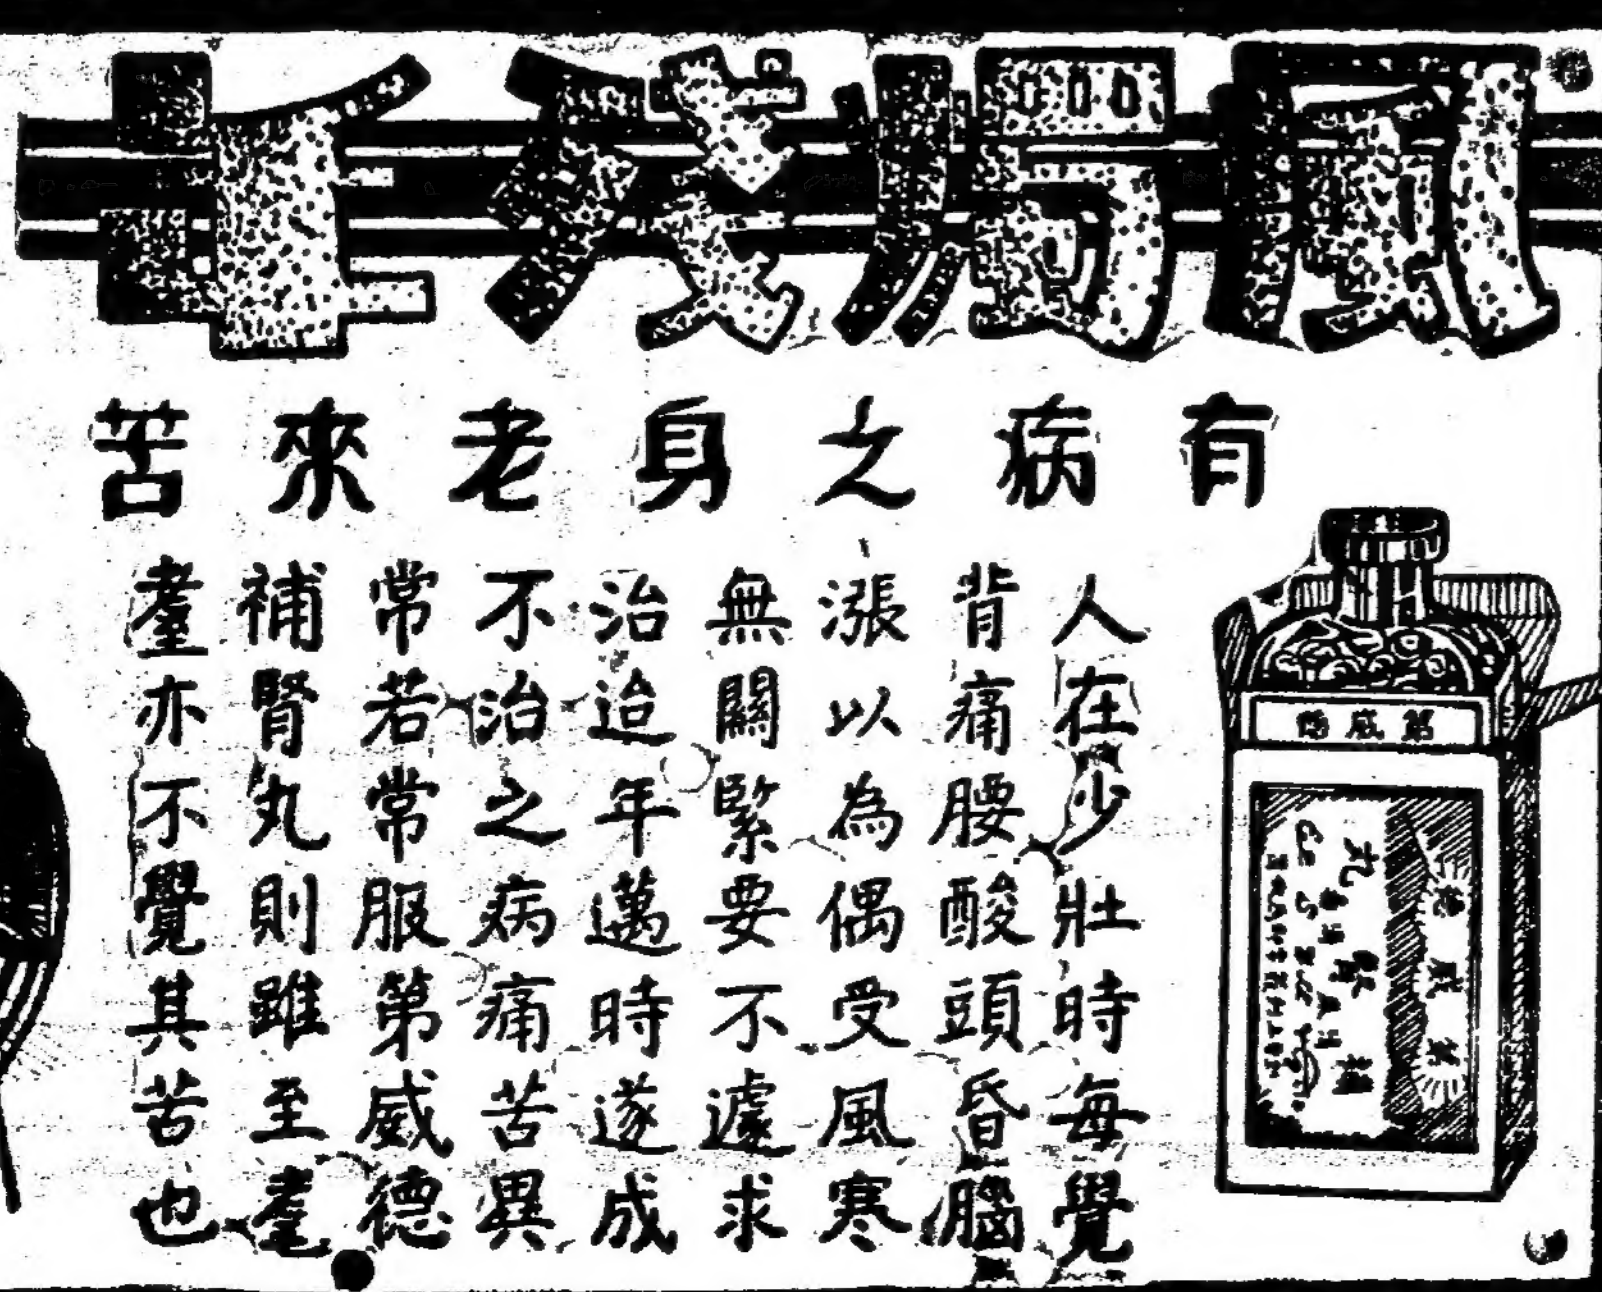 風燭殘年
有病之身老來苦
人在少壯時每覺
背痛腰酸頭昏腦
漲以為偶受風寒
無關緊要不遽求
治迨年邁時遂成
不治之病痛苦異
常若常服第威德
補腎丸則雖至耄
耋亦不覺其苦也
第威德
補腎丸